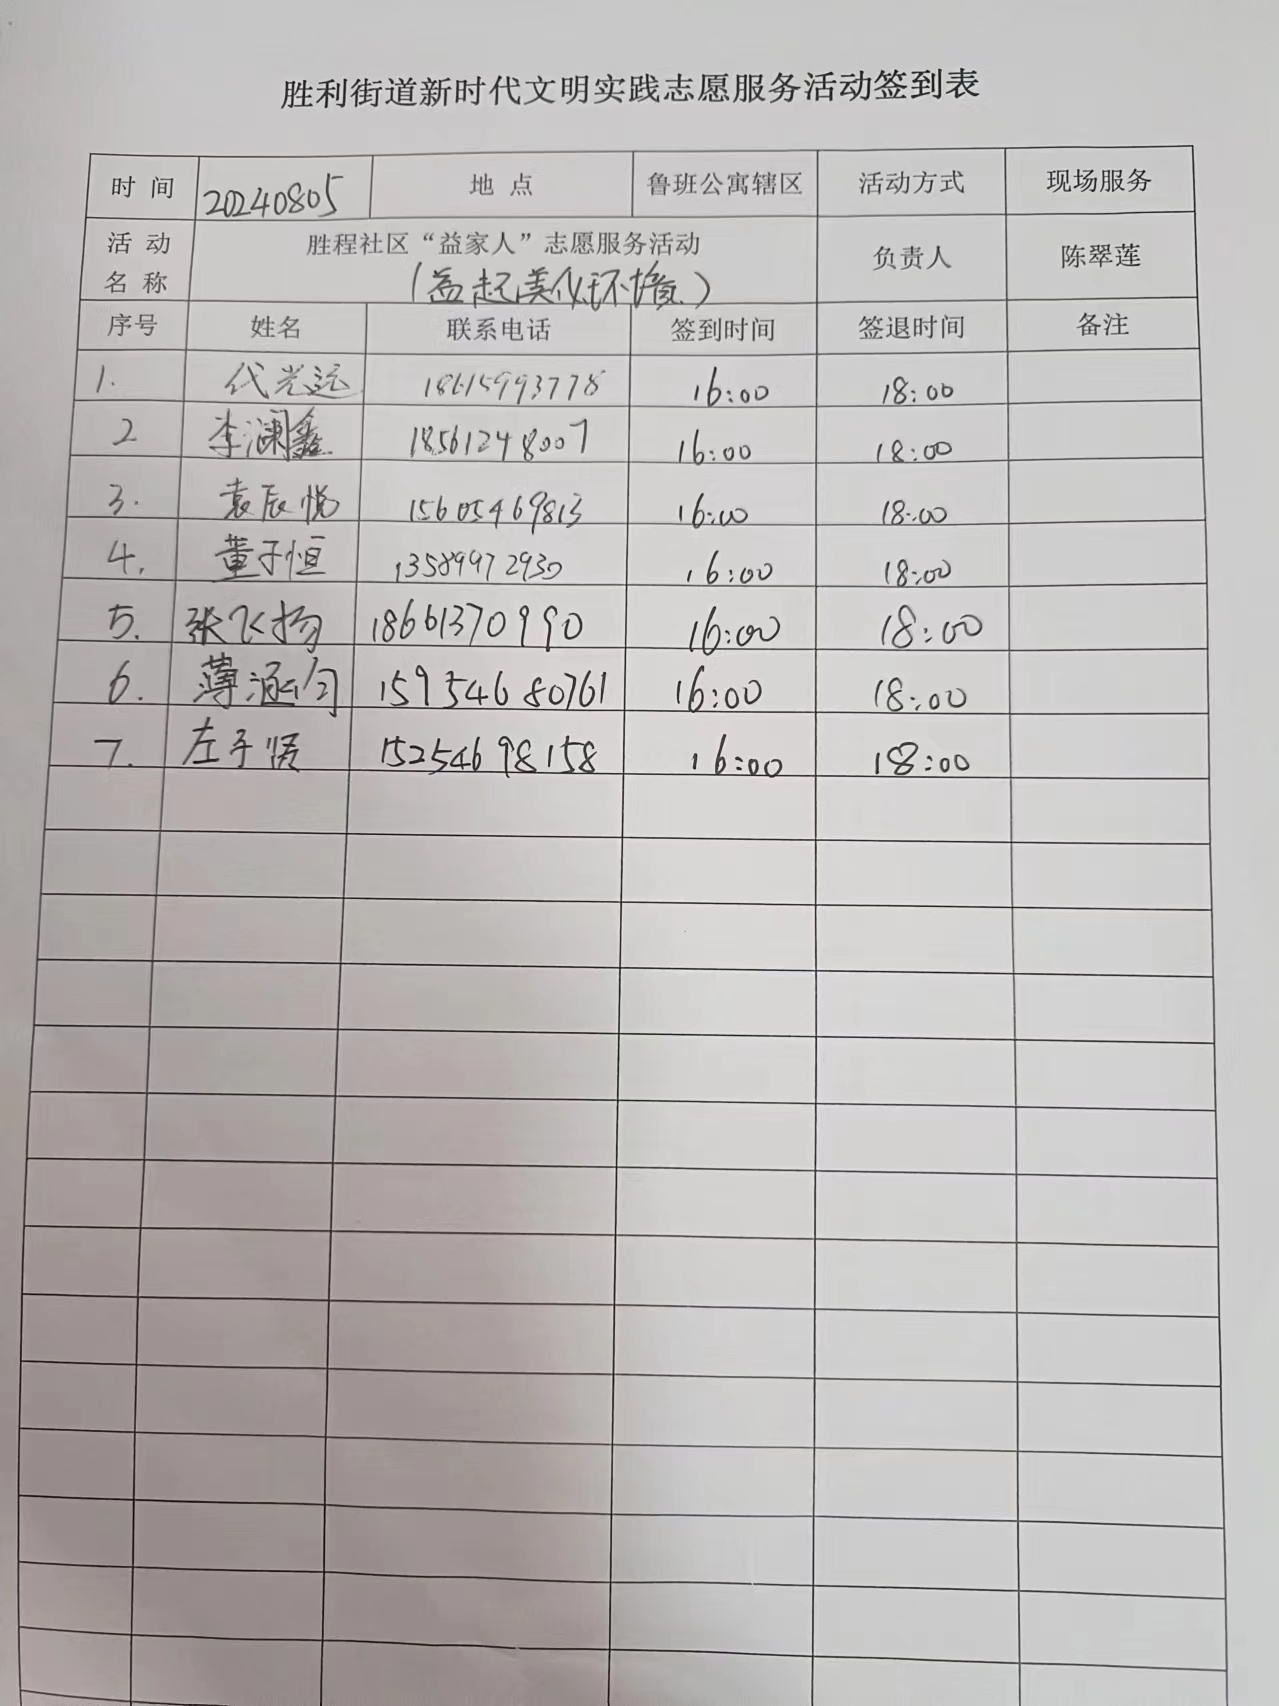 胜利街道新时代文明实践志愿服务活动签到表
时 间 20240805 地 点 鲁班公寓辖区 活动方式 现场服务
活 动 名 称 胜程社区“益家人”志愿服务活动 负责人 陈翠莲
(益起美化环境)
序号 姓名 联系电话 签到时间 签退时间 备注
1. 代光远 18615993778 16:00 18:00
2 李澜鑫 18561248007 16:00 18:00
3. 袁辰悦 15605469813 16:00 18:00
4. 董子恒 13589972930 16:00 18:00
5. 张飞扬 18661370990 16:00 18:00
6. 薄涵匀 15954680761 16:00 18:00
7. 左子贤 15254698158 16:00 18:00